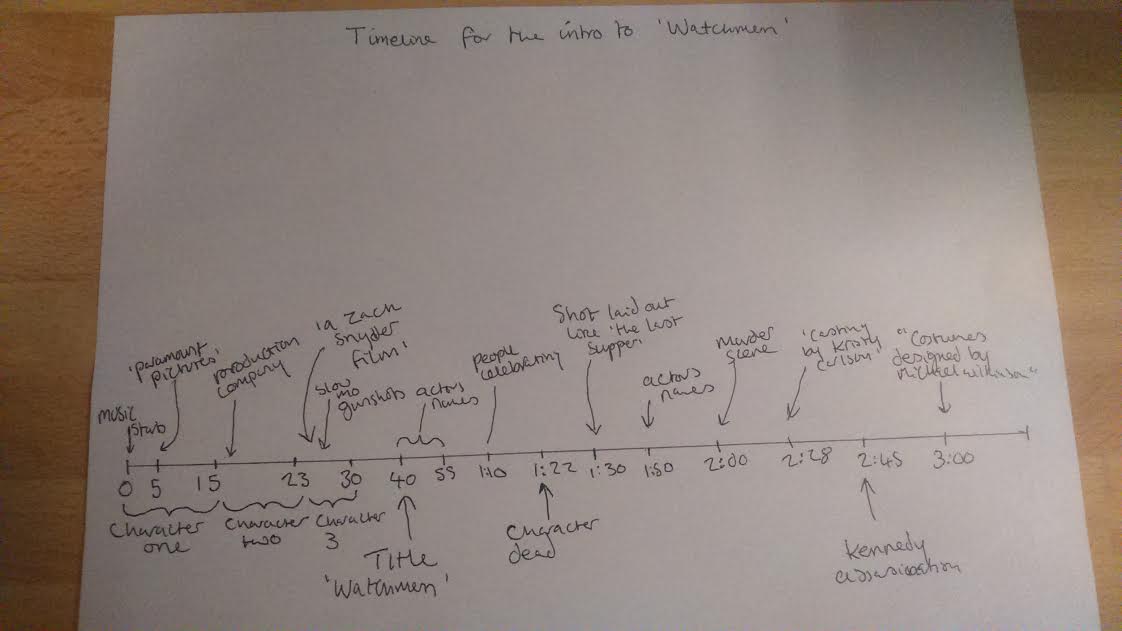 Timeline for the intro to 'Watchmen'
'a Zach
Snyder
film'
Shot laid out
like 'the last
supper'
'paramount
pictures'
production
company
slow
mo
gunshots
actors
names
people
celebrating
actors
names
murder
scene
'Casting
by Kristy
Carlson'
"Costumes
designed by
Michael wilkinson"
music
starts
0 5 15 23 30 40 55 1:10 1:22 1:30 1:50 2:00 2:28 2:45 3:00
Character
one
Character
two
Character
3
Title
'Watchmen'
Character
dead
Kennedy